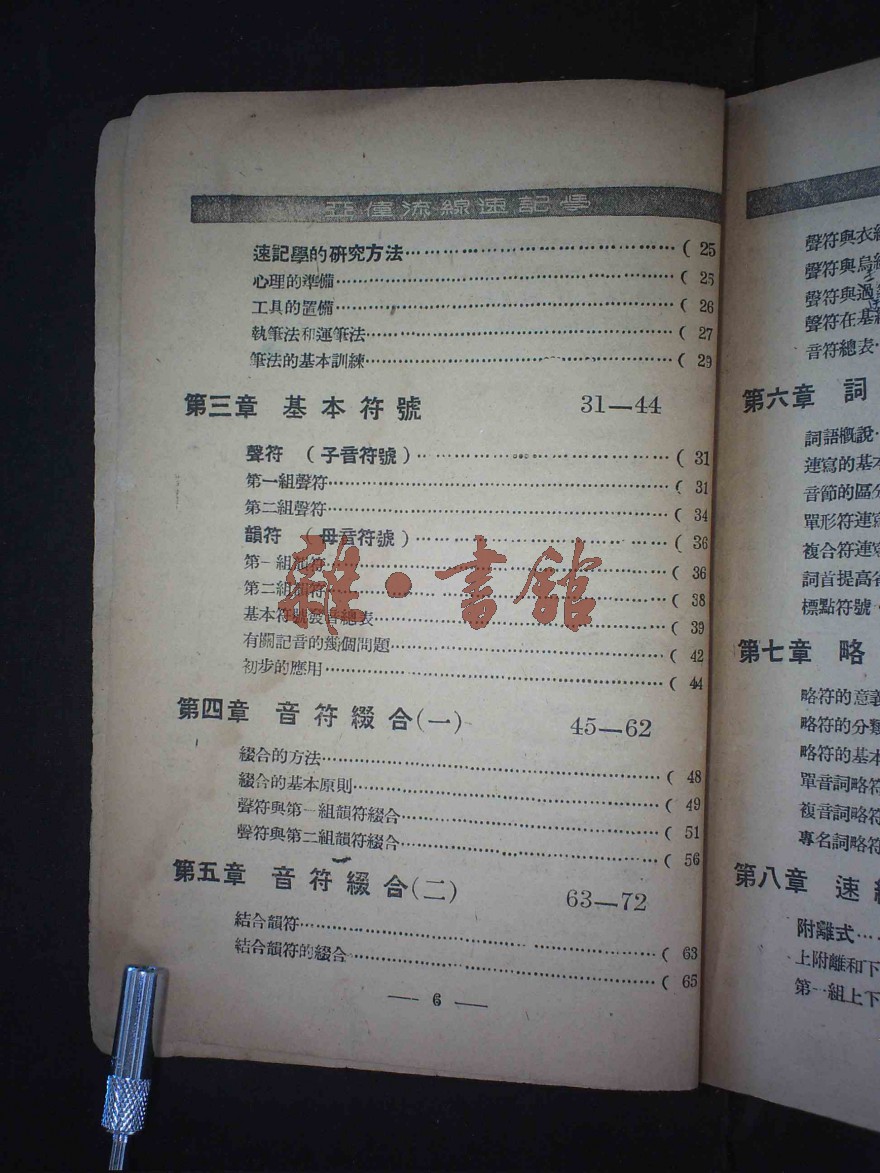 亞偉流線速記學
速記學的研究方法……( 25
心理的準備……( 25
工具的置備……( 26
執筆法和運筆法……( 27
筆法的基本訓練……( 29
第三章 基本符號 31—44
聲符 (子音符號)……( 31
第一組聲符……( 31
第二組聲符……( 34
韻符 (母音符號)……( 36
第一組韻符……( 36
第二組韻符……( 38
基本符號發音總表……( 39
有關記音的幾個問題……( 42
初步的應用……( 44
第四章 音符綴合(一) 45—62
綴合的方法……( 48
綴合的基本原則……( 49
聲符與第一組韻符綴合……( 51
聲符與第二組韻符綴合……( 56
第五章 音符綴合(二) 63—72
結合韻符……( 63
結合韻符的綴合……( 65
— 6 —
雜·書館
聲符與衣
聲符與烏
聲符與
聲符在基
音符總表
第六章 詞
詞語概說
連寫的基本
音節的區分
單形符連寫
複合符連寫
詞首提高
標點符號
第七章 略
略符的意義
略符的分類
略符的基本
單音詞略符
複音詞略符
專名詞略符
第八章 速
附離式……
上附離和下
第一組上下